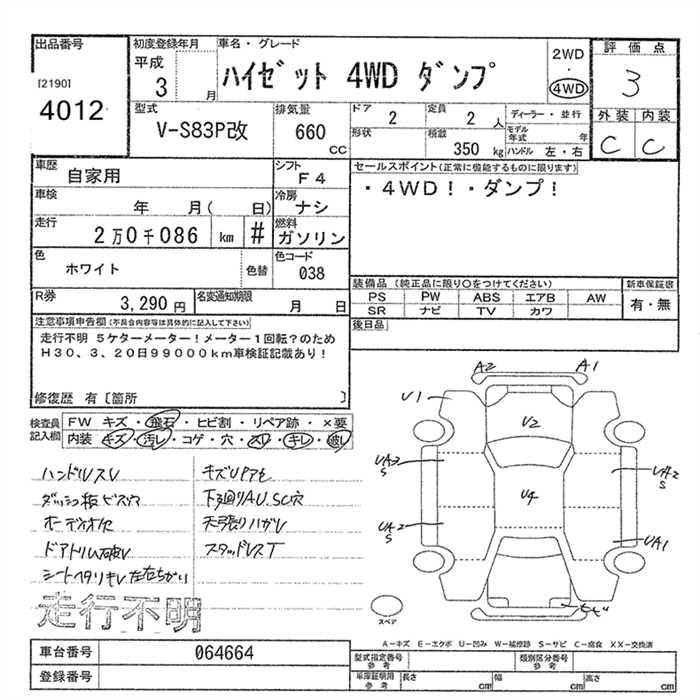 出品番号
[2190]
4012
初度登録年月
平成
3 月
車名・グレード
ハイゼット 4WD ダンプ
2WD
・
4WD
評価点
3
外装 内装
C C
型式
V-S83P改
排気量
660
CC
ドア
2
定員
2 人
ディーラー・並行
形状
積載
350 kg
モデル年式 年
ハンドル 左・右
車歴
自家用
シフト
F4
セールスポイント(正常に機能するものに限ります)
・4WD!・ダンプ!
車検
年 月( 日)
冷房
ナシ
走行
2万0千086 km #
燃料
ガソリン
色
ホワイト
色替
色コード
038
装備品 (純正品に限り〇をつけてください)
新車保証書
PS PW ABS エアB AW
SR ナビ TV カワ
有・無
R券
3,290 円
名変通知期限
月 日
後日品
注意事項申告欄(不具合内容等は具体的に記入して下さい)
走行不明 5ケターメーター!メーター1回転?のため
H30、3、20日99000km車検証記載あり!
修復歴 有〔箇所 〕
検査員
記入欄
FW キズ・飛石・ヒビ割・リペア跡・×要
内装 キズ・汚レ・コゲ・穴・スレ・キレ・破レ
ハンドルスレ
ダッシュ板ビス穴
オーディオ欠
ドアトリム破レ
シートヘタリキレ左右ちがい
下廻りAU.SC穴
天張りハガレ
スタッドレスT
走行不明
A2 A1
U1
U2
UA2
S
UA2
S
U4
UA2
S
UA1
スペア
A-キズ E-エクボ U-凹み W-補修跡 S-サビ C-腐食 XX-交換済
車台番号
064664
登録番号
型式指定番号
参考
類別区分番号
参考
車庫証明用
参考
長さ cm
幅 cm
高さ cm